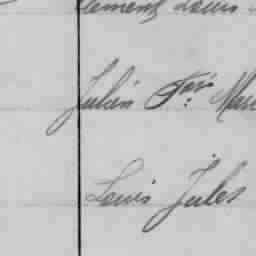 Clement Louis
Julien Fois: Marie
Louis Jules